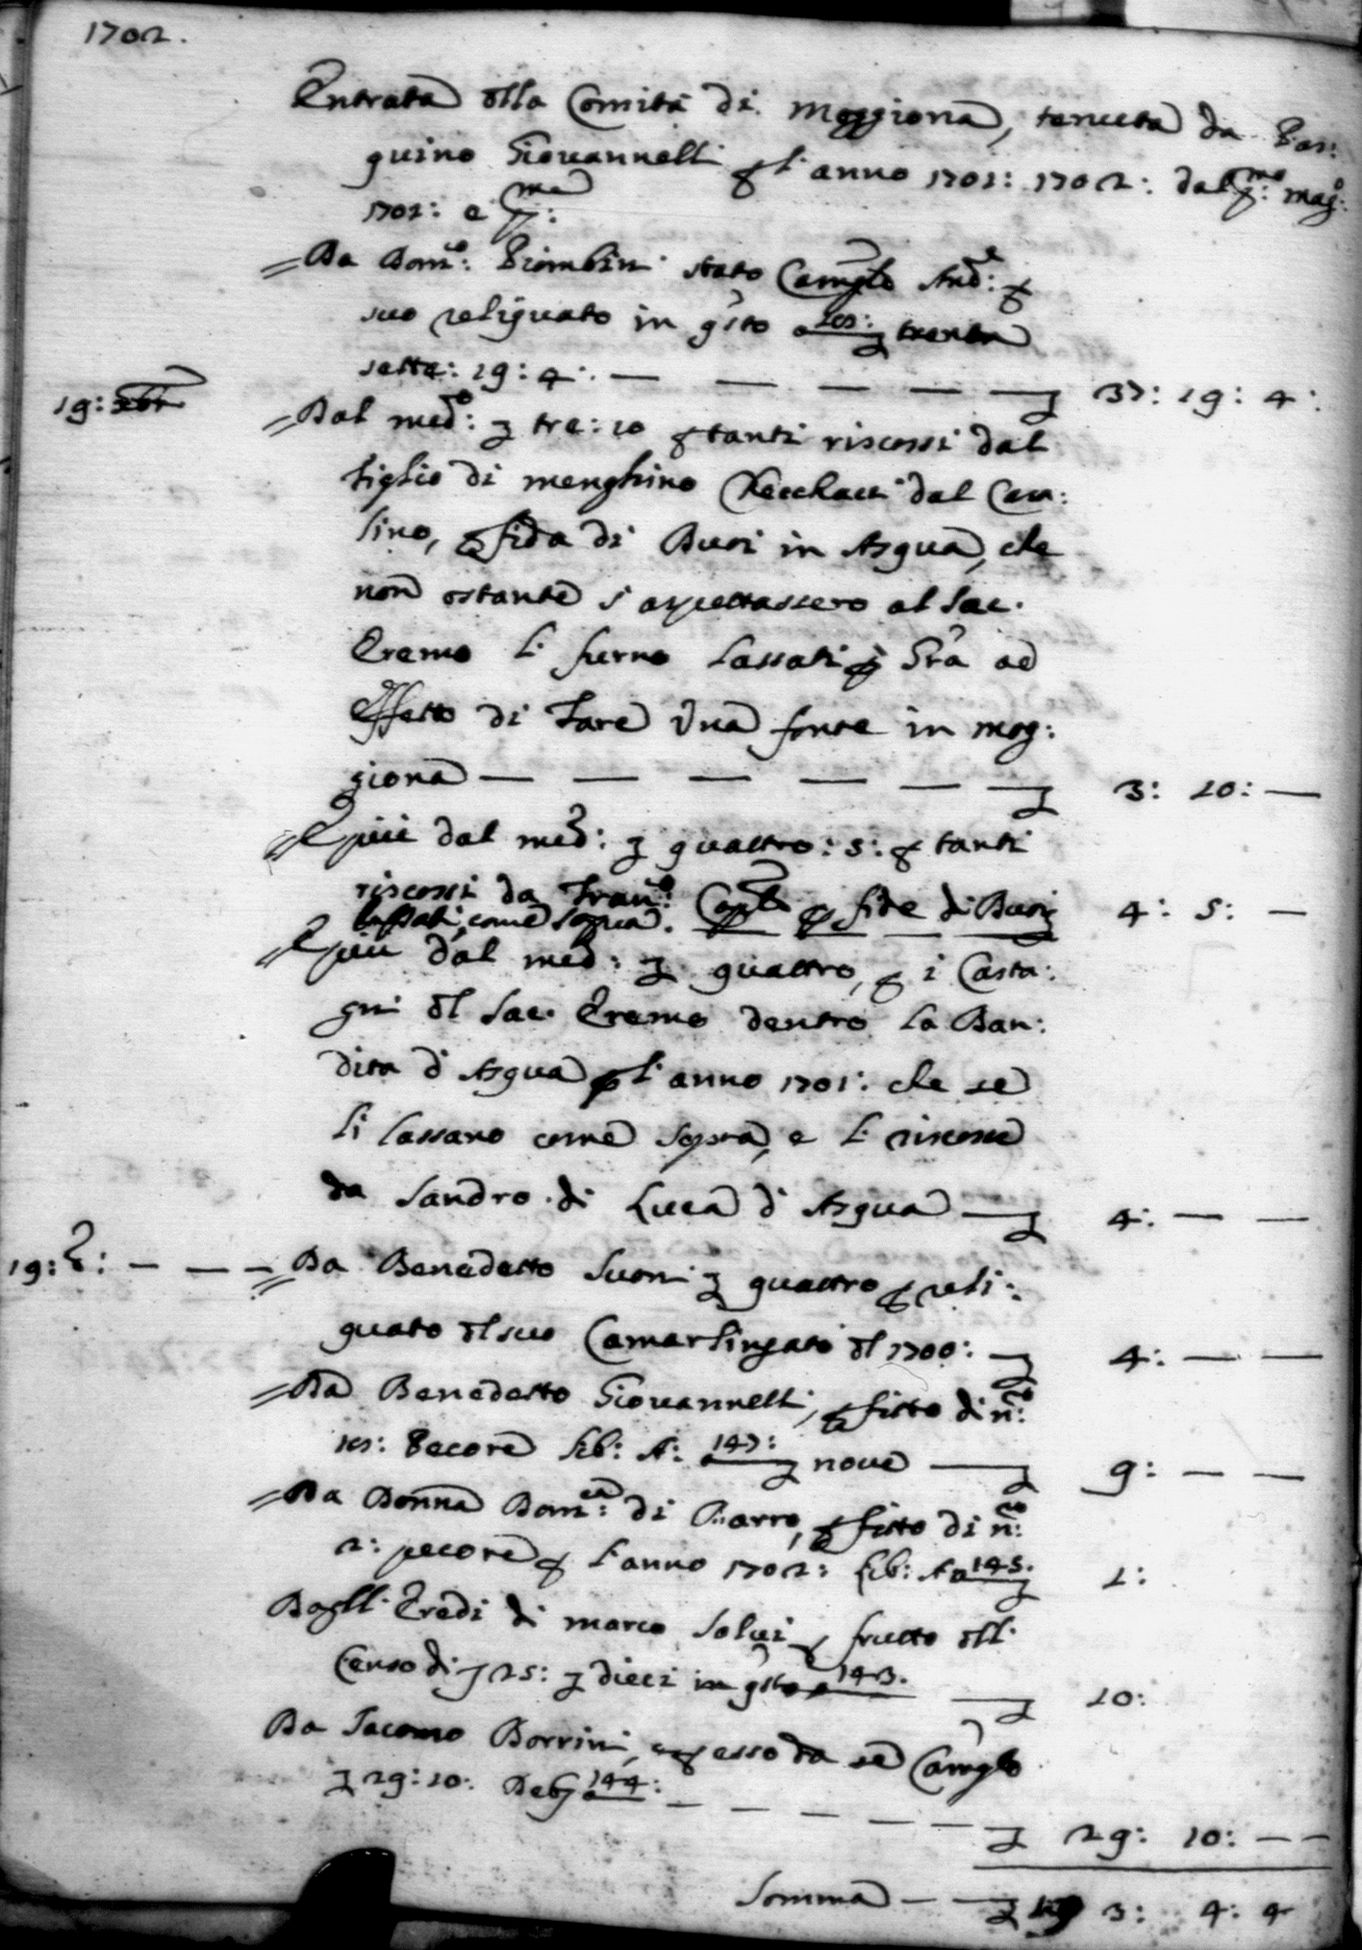 1702.
Entrata dlla Comità di Moggiona, tenuta da Pas:
quino Giovannelli p l'anno 1701: 1702: dal p:mo mag:o
1702: e p:ma
Da Dom:co Piombini stato Camglo And:e p
suo reliquato in qsto a 101: trenta
sette: 19: 4: — — — — 37: 19: 4:
19: xbre
Dal med:o tre: 10 p tanti riscossi dal
figlio di Menghino Checchacci dal Can:
sino, p fida di Buoi in Asqua, che
non ostante s'aspettassero al Sac.
Eremo li furno lassati p Gra ad
effetto di fare una fonte in Mog:
giona — — — — — — 3: 10: —
E più dal med: quattro: 5: p tanti
riscossi da Fran:co p fide di Buoi 4: 5: —
lassati, come sopra.
E più dal med: quattro, p i Casta:
gni dl Sac. Eremo dentro la Ban:
dita d'Asqua p l'anno 1701: che se
li lassano come sopra, e li riscosse
da Sandro di Luca d'Asqua — 4: — —
19: — — —
Da Benedetto Suoni quattro p reli:
quato dl suo Camarlingato dl 1700: — 4: — —
Da Benedetto Giovannelli, p fitto di n:ro
10: Pecore lib: A: a 147: nove — — 9: — —
Da Donna Dom:ca di Biarro, p fitto di n:ro
2: pecore p l'anno 1702: lib: A a 145. 1:
Dagll' Eredi di Marco Salvi p frutto dll'
Censo di 25: dieci in qsto a 143. — 10:
Da Iacomo Borrini, e p esso da se Camglo
29: 10: Deb a 144: — — — — — 29: 10: — —
Somma — — 3: 4: 4